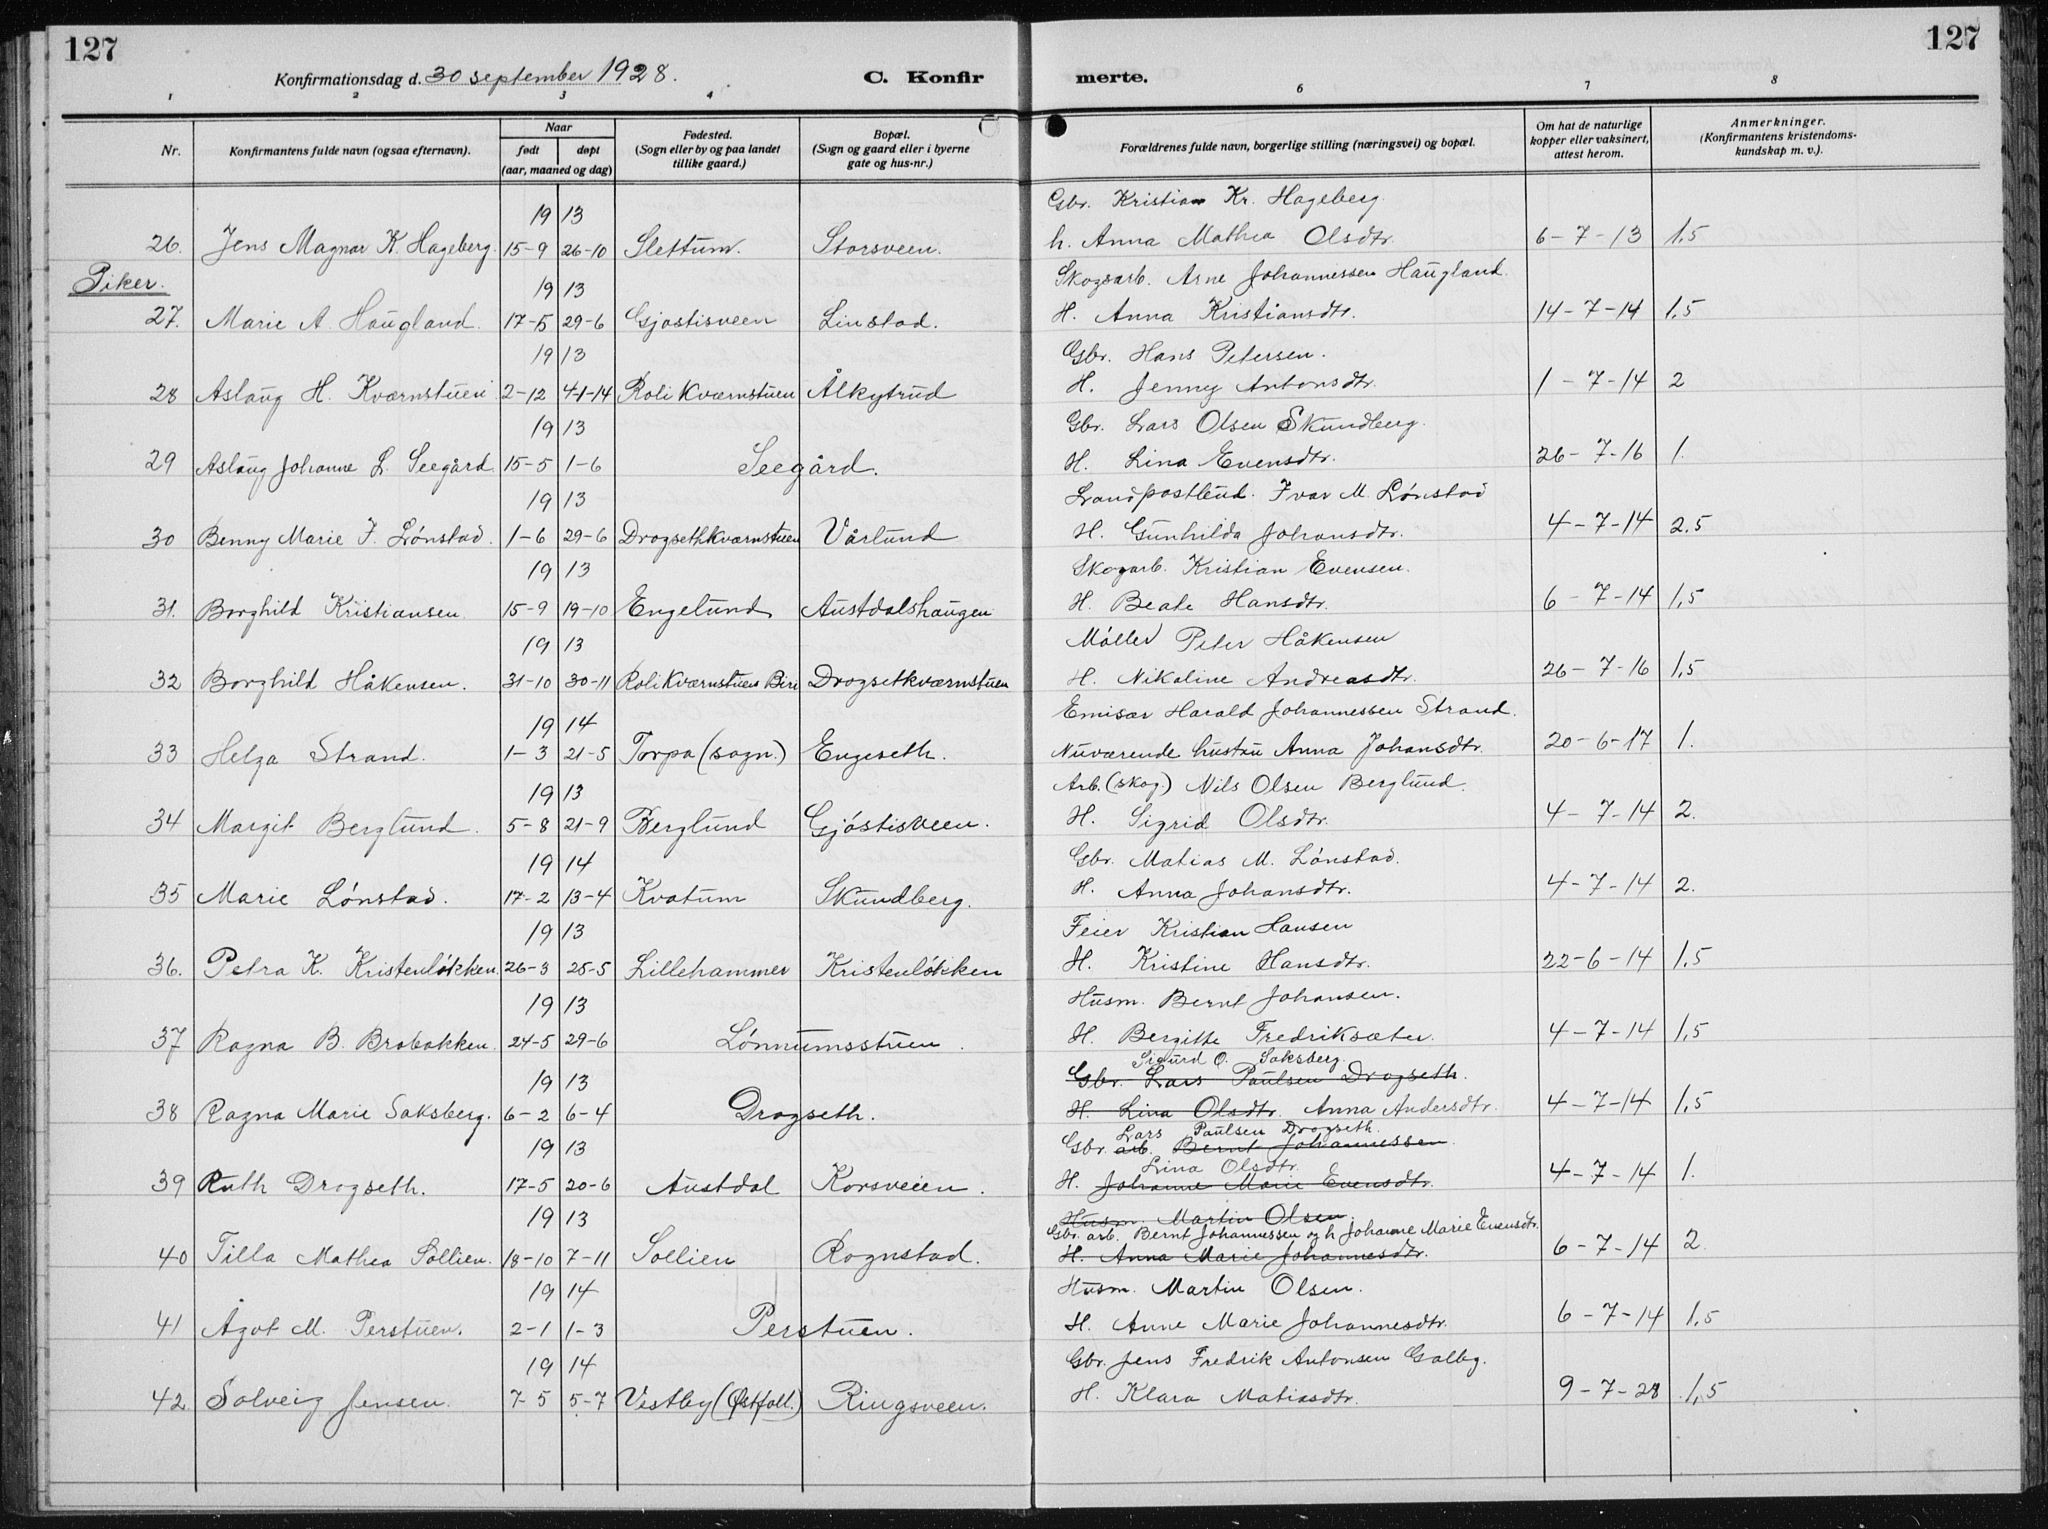 127
127
Konfirmationsdag d. 30 september 1928.
C. Konfir
merte.
1 2 3 4 6 7 8
Nr.
Konfirmantens fulde navn (ogsaa efternavn).
Naar
født
døpt
(aar, maaned og dag)
Fødested.
(Sogn eller by og paa landet
tillike gaard.)
Bopæl.
(Sogn og gaard eller i byerne
gate og hus-nr.)
Forældrenes fulde navn, borgerlige stilling (næringsvei) og bopæl.
Om hat de naturlige
kopper eller vaksinert,
attest herom.
Anmerkninger.
(Konfirmantens kristendoms-
kundskap m. v.).
19 13 Gbr. Kristian Kr. Hageberg
26. Jens Magnar K. Hageberg. 15-9 26-10 Slettum. Storsveen. h. Anna Mathea Olsdtr. 6-7-13 1,5
Piker.
19 13 Skogsarb. Arne Johannessen Haugland.
27. Marie A. Haugland. 17-5 29-6 Gjøstisveen Linstad. H. Anna Kristiansdtr. 14-7-14 1,5
19 13 Gbr. Hans Petersen.
28 Aslaug H. Kværnstuen 2-12 4-1-14 Roli Kværnstuen Ålkytrud H. Jenny Antonsdtr. 1-7-14 2
19 13 Gbr. Lars Olsen Skundberg.
29 Aslaug Johanne L. Seegård 15-5 1-6 Seegård. H. Lina Evensdtr. 26-7-16 1.
19 13 Landpostbud. Ivar M. Lønstad
30 Benny Marie I. Lønstad. 1-6 29-6 Drogsethkværnstuen Vårlund H. Gunhilda Johansdtr. 4-7-14 2.5
19 13 Skogarb. Kristian Evensen.
31. Borghild Kristiansen. 15-9 19-10 Engelund Austdalshaugen H. Beate Hansdtr. 6-7-14 1,5
19 13 Møller Peter Håkensen
32 Borghild Håkensen. 31-10 30-11 Roli Kværnstuen Biri Drogsetkværnstuen H. Nikoline Andreasdtr. 26-7-16 1,5
19 14 Emisær Harald Johannessen Strand.
33 Helga Strand. 1-3 21-5 Torpa (sogn.) Engeseth. Nuværende hustru Anna Johansdtr. 20-6-17 1.
19 13 Arb. (skog.) Nils Olsen Berglund.
34 Margit Berglund. 5-8 21-9 Berglund Gjøstisveen. H. Sigrid Olsdtr. 4-7-14 2.
19 14 Gbr. Matias M. Lønstad.
35 Marie Lønstad. 17-2 13-4 Kvatum Skundberg. H. Anna Johansdtr. 4-7-14 2.
19 13 Feier Kristian Hansen
36. Petra K. Kristenløkken. 26-3 25-5 Lillehammer Kristenløkken H. Kristine Hansdtr. 22-6-14 1.5
19 13 Husm. Bernt Johansen.
37 Ragna B. Brobakken. 24-5 29-6 Lønnumsstuen. H. Bergitte Fredriksæter. 4-7-14 1,5
Sigurd O. Saksberg.
19 13 Gbr. Lars Paulsen Drogseth.
38 Ragna Marie Saksberg. 6-2 6-4 Drogseth. H. Lina Olsdtr. Anna Andersdtr. 4-7-14 1,5
Lars Paulsen Drogseth.
19 13 Gbr. arb. Bernt Johannessen.
Lina Olsdtr.
39 Ruth Drogseth. 17-5 20-6 Austdal Korsveien. H. Johanne Marie Evensdtr. 4-7-14 1.
19 13 Husm. Martin Olsen.
Gbr. arb. Bernt Johannessen og h Johanne Marie Evensdtr.
40 Tilla Mathea Sollien. 18-10 7-11 Sollien Rognstad. H. Anna Marie Johannesdtr. 6-7-14 2.
19 14 Husm. Martin Olsen.
41 Ågot M. Perstuen. 2-1 1-3 Perstuen. H. Anne Marie Johannesdtr. 6-7-14 1,5
19 14 Gbr. Jens Fredrik Antonsen Galbg.
42 Solveig Jensen. 7-5 5-7 Vestby (Østfoll.) Ringsveen. H. Klara Matiasdtr. 9-7-28 1,5